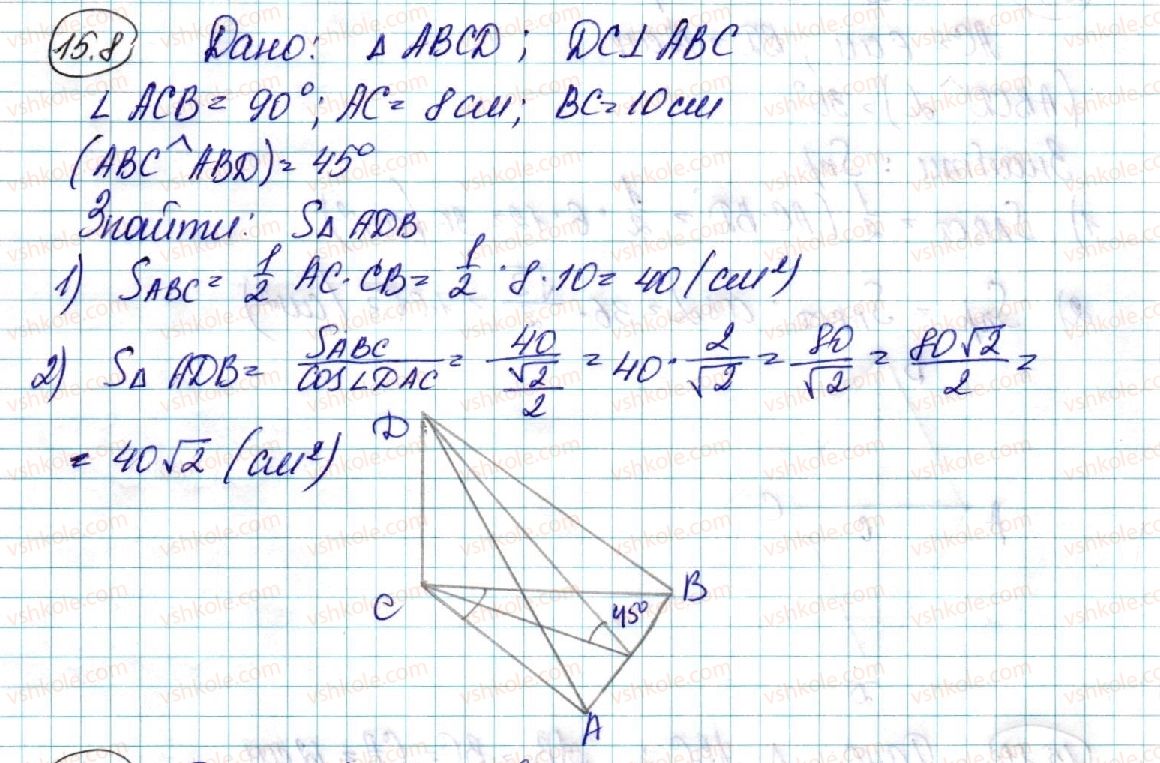 15.8 Дано: △ ABCD ; DC⊥ ABC
∠ ACB = 90°; AC = 8 см; BC = 10 см
(ABC^ABD) = 45°
Знайти: S△ ADB
1) SABC = 1/2 AC · CB = 1/2 · 8 · 10 = 40 (см²)
2) S△ ADB = SABC/cos∠DAC = 40/(√2/2) = 40 · 2/√2 = 80/√2 = 80√2/2 =
= 40√2 (см²)
D
C
B
45°
A